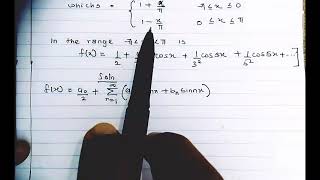 which is { 1 + x/π π ≤ x ≤ 0
1 - x/π 0 ≤ x ≤ π
In the range π ≤ is
f(x) = 1/2 + cosx + 1/3² cos3x + 1/5² cos5x + ...]
Soln
f(x) = a₀/2 + ∑ n=1 ∞ (a nx + bₙ sinnx)